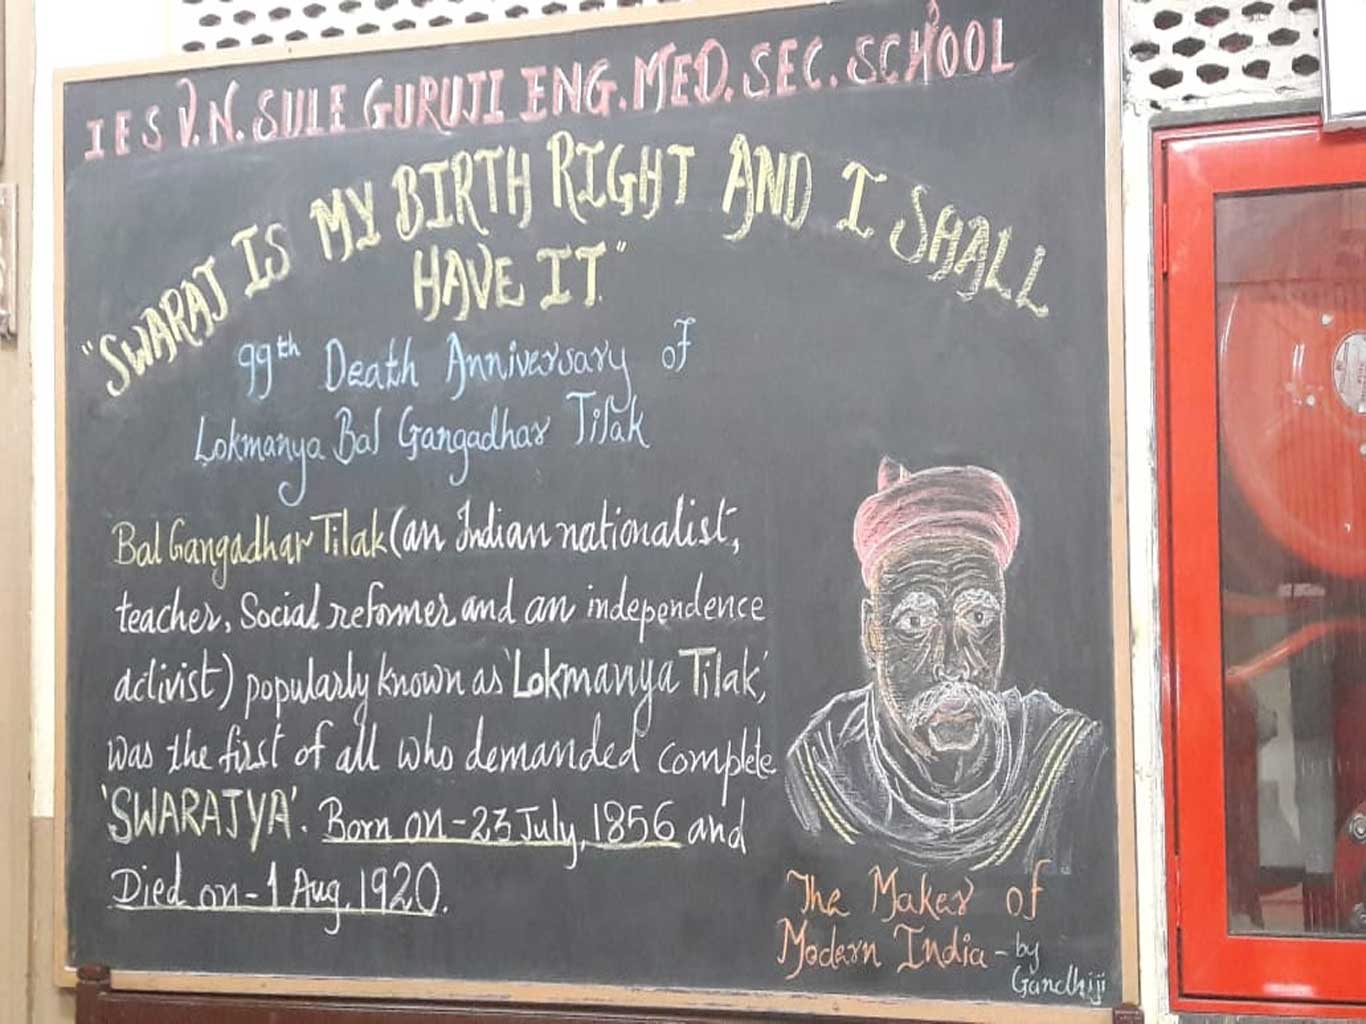 IES V.N. SULE GURUJI ENG. MED. SEC. SCHOOL
"SWARAJ IS MY BIRTH RIGHT AND I SHALL
HAVE IT."
99th Death Anniversary of
Lokmanya Bal Gangadhar Tilak
Bal Gangadhar Tilak (an Indian nationalist,
teacher, Social reformer and an independence
activist) popularly known as 'Lokmanya Tilak',
was the first of all who demanded complete
'SWARAJYA'. Born on - 23 July, 1856 and
Died on - 1 Aug, 1920.
The Maker of
Modern India - by
Gandhiji